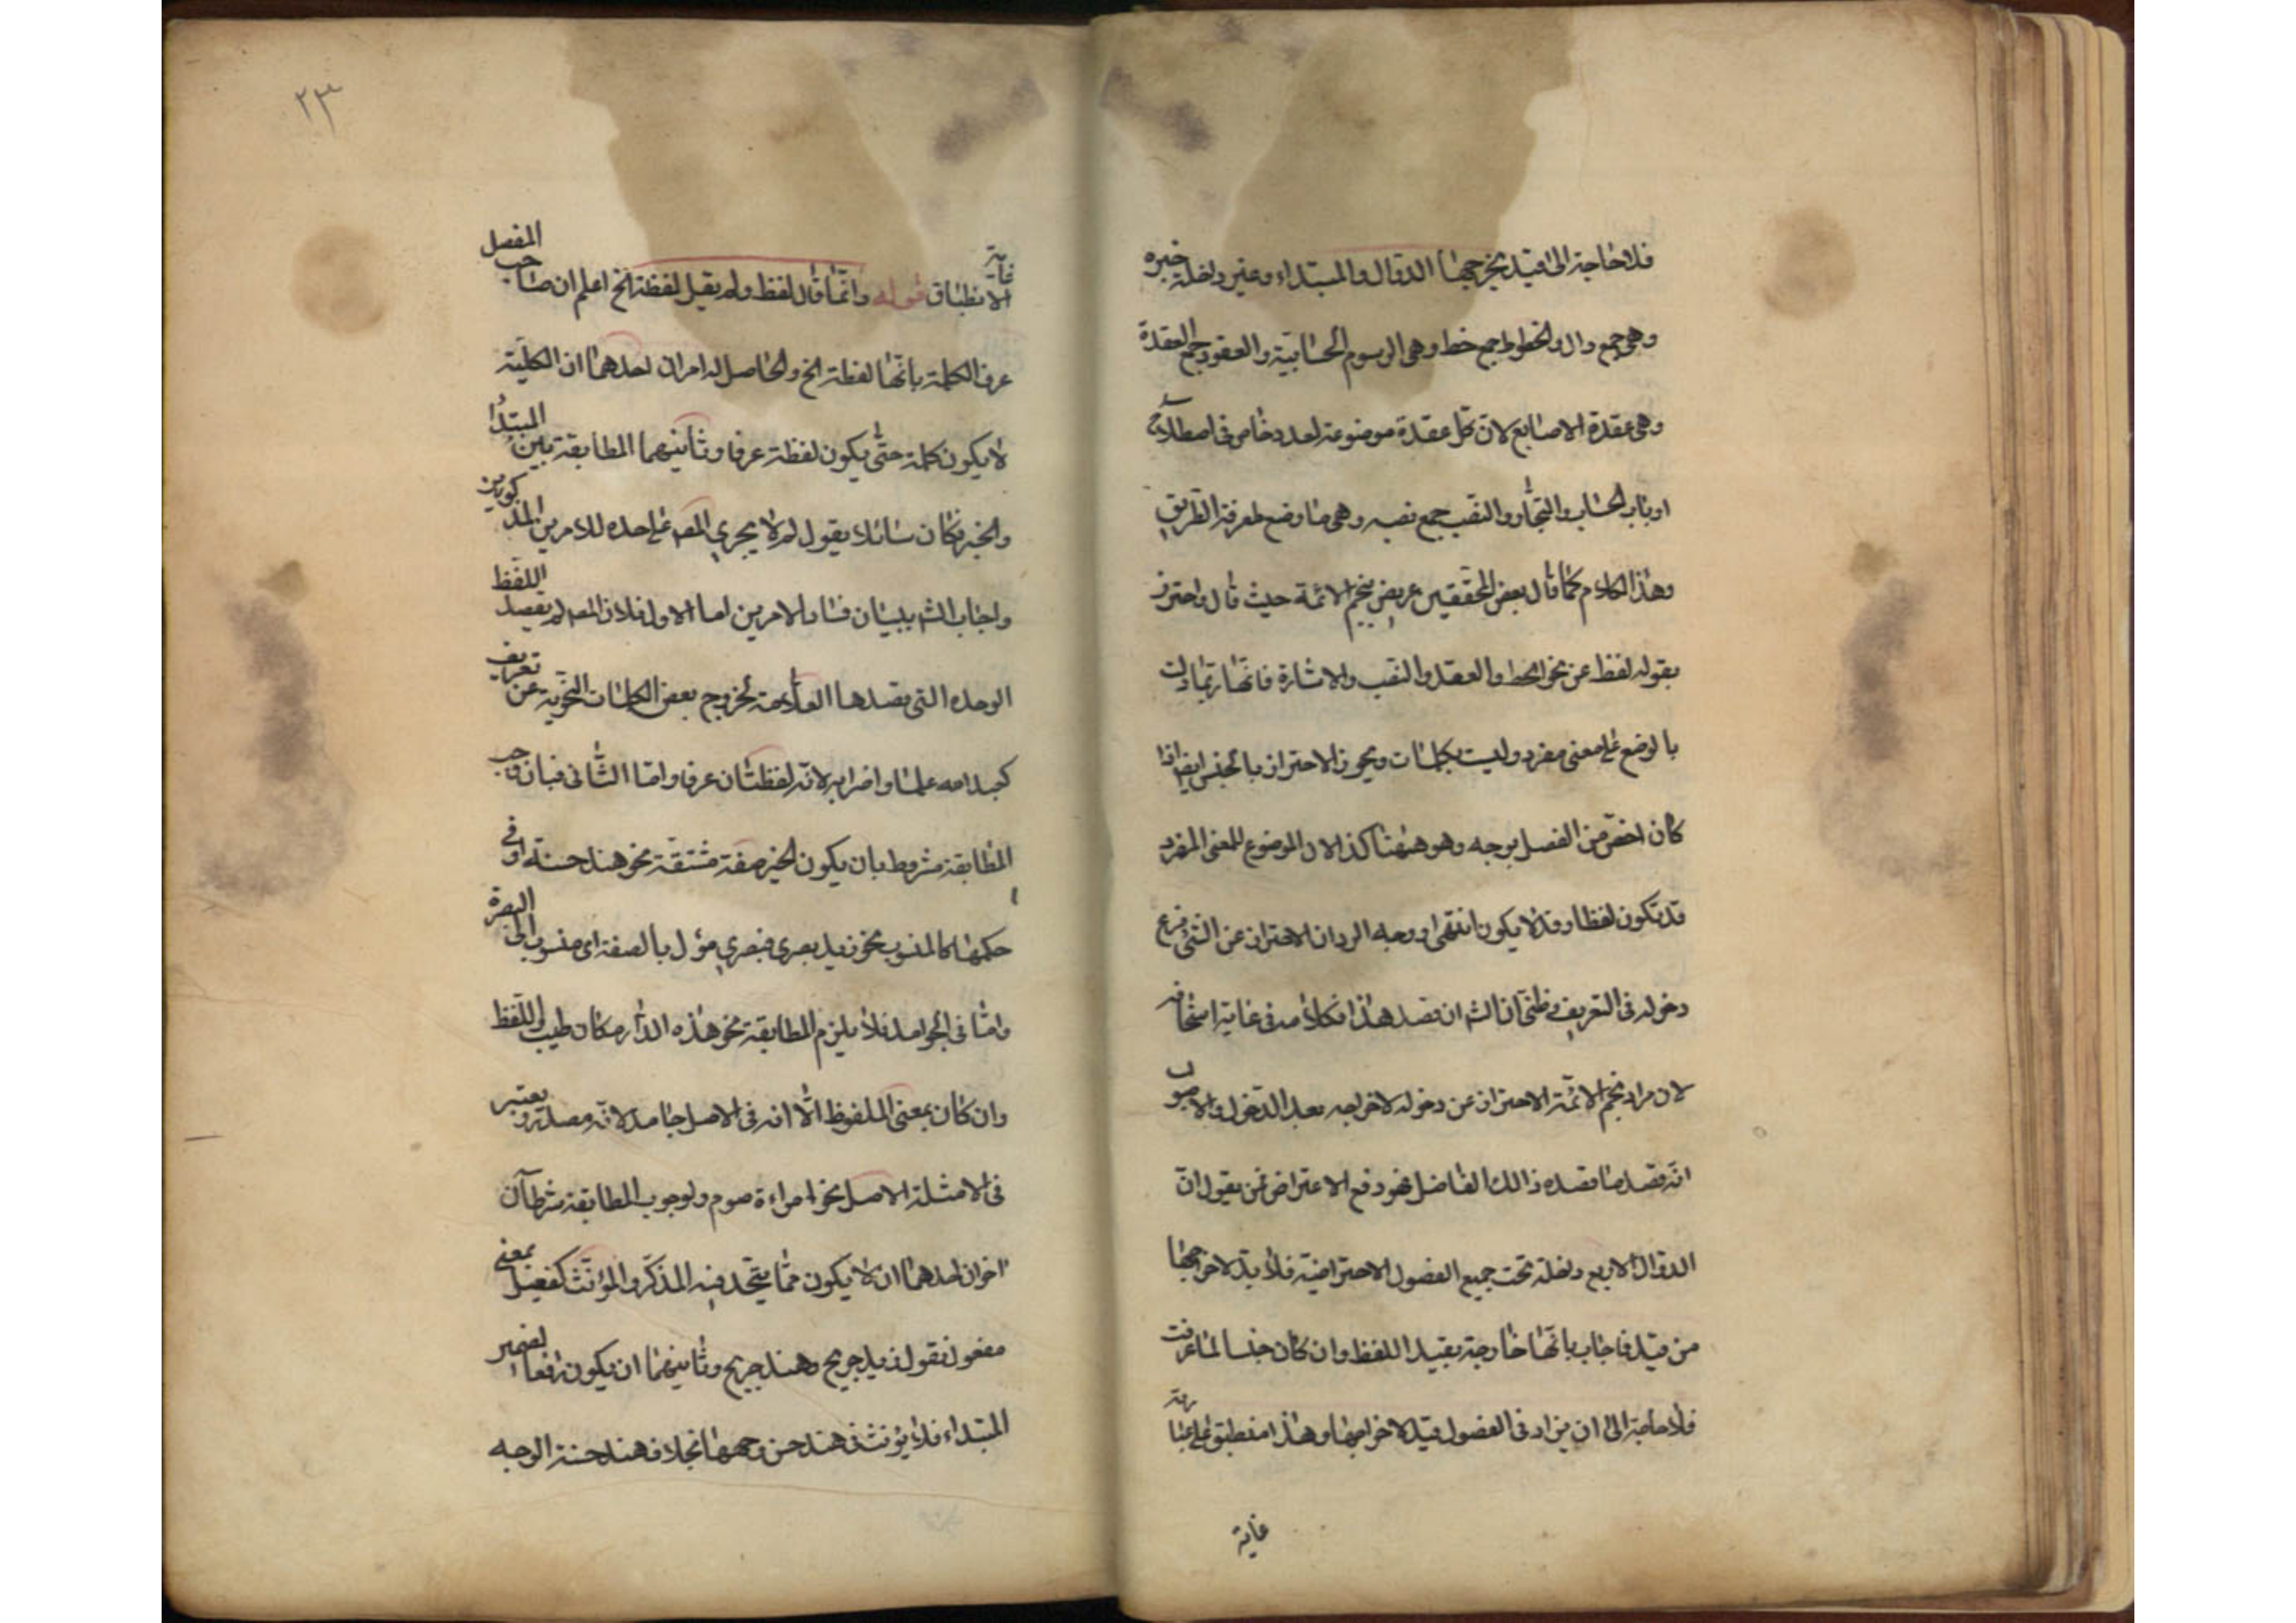 فلا حاجة الى قيد يخرجها الدوال والمبتداء وغير داخلة خبره
وهى جمع دال والخطوط جمع خط وهى الرسوم الحسابية والعقود جمع العقدة
وهى عقدة الاصابع لان كل عقدة موضوعة لعدد خاص فى اصطلاح
ارباب الحساب والتجار والنصب جمع نصبه وهى ما وضع لمعرفة الطريق
وهذا الكلام كما قال بعض المحققين عريض بنجم الائمة حيث قال واحترز
بقوله لفظ عن نحو الخط والعقد والنصب والاشارة فانها ربما دلت
بالوضع على معنى مفرد وليست بكلمات ويجوز الاحتراز بالجنس ايضا اذا
كان اخص من الفصل بوجه وهو ههنا كذا لان الموضوع للمعنى المفرد
قد تكون لفظا وقد لا يكون انتهى ووجه الرد ان الاحتراز عن الشئ فرع
دخوله فى التعريف فظنى ان الشه ان قصد هذا فكلامه فى غاية
لان مراد نجم الائمة الاحتراز عن دخوله لاخراجه بعد الدخول والاصوب
انه قصد ما قصده ذالك الفاضل فهو دفع الاعتراض عمن يقول ان
الدوال الاربع داخلة تحت جميع الفصول الاحترازية فلا بد لاخراجها
من قيد فاجاب بانها خارجة بقيد اللفظ وان كان جنسا لما عرفت
فلا حاجة الى ان يزاد فى الفصول قيد لاخراجها وهذا منطبق على عبارته
غاية
٢٣
غاية
الانطباق قوله وانما قال لفظ ولم يقل لفظة الخ اعلم ان صاحب المفصل
عرف الكلمة بانها لفظة الخ والحاصل له امران احدهما ان الكلمة
لا يكون كلمة حتى يكون لفظة عرفا وثانيهما المطابقة بين المبتدا
والخبر فكان سائلا يقول لم لا يجرى المصه على حده للامرين المذكورين
واجاب الشه ببيان فساد الامرين اما الاول فلان المصه لم يقصد اللفظ
الوحده التى قصدها العلامة لخروج بعض الكلمات النحوية عن تعريف
كعبد الله علما واضرابه لانه لفظتان عرفا واما الثانى فبان وجب
المطابقة مشروط بان يكون الخبر صفة مشتقة نحو هند حسنة او فى
حكمها كالمنسوب نحو زيد بصرى فبصرى مؤل بالصفة اى منسوب الى البصرة
واما فى الجوامد فلا يلزم المطابقة نحو هذه الدار مكان طيب واللفظ
وان كان بمعنى الملفوظ الا انه فى الاصل جامد لانه مصدر ويعتبر
فى الامثلة الاصل نحو امراءة صوم ولوجوب المطابقة شرطان
اخران احدهما ان لا يكون مما يتحد فيه المذكر والمؤنث كفعيل بمعنى
مفعول نقول زيد جريح وهند جريح وثانيهما ان يكون رافعا لضمير
المبتداء فلا يؤنث فى هند حسن وجهها بخلاف هند حسنة الوجه